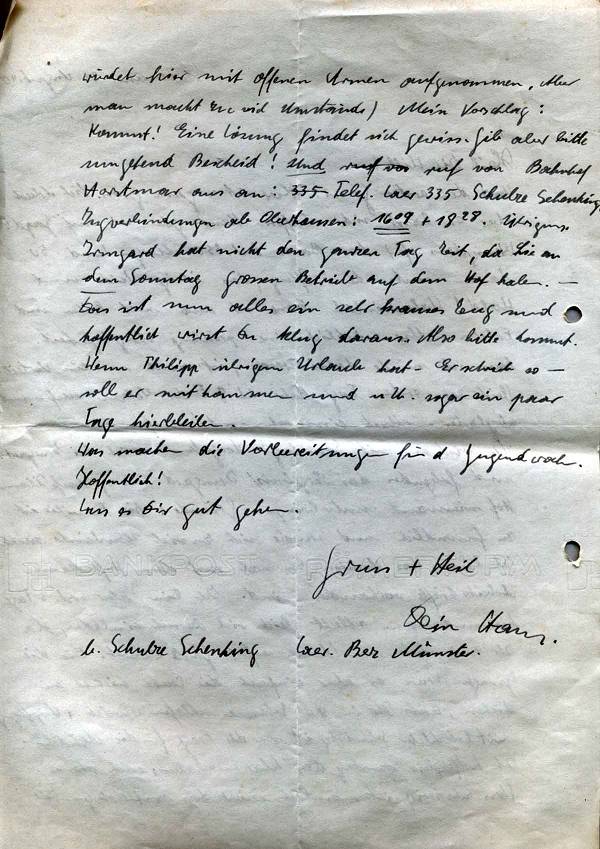 würdet hier mit offenen Armen aufgenommen. Aber
man macht zu viel Umstände) Mein Vorschlag:
Kommt! Eine Lösung findet sich gewiss. Gib aber bitte
umgehend Bescheid! Und ruf von Bahnhof
Horstmar aus an: 335 Telef. Laer 335 Schulze Schenking.
Zugverbindungen ab Oberhausen: 16 09 + 18 28. Übrigens
Irmgard hat nicht den ganzen Tag Zeit, da Sie an
dem Sonntag grossen Betrieb auf dem Hof haben. —
Das ist nun alles ein sehr krauses Zeug und
hoffentlich wirst Du klug daraus. Also bitte kommt.
Wenn Philipp übrigens Urlaub hat - Er schrieb so —
soll er mitkommen und u.U. sogar ein paar
Tage hierbleiben.
Was machen die Vorbereitungen für d Jugendwoche.
Hoffentlich!
Lass es Dir gut gehen.
Gruss + Heil
Dein Hans.
b. Schulze Schenking Laer. Bez Münster.
BANKPOST